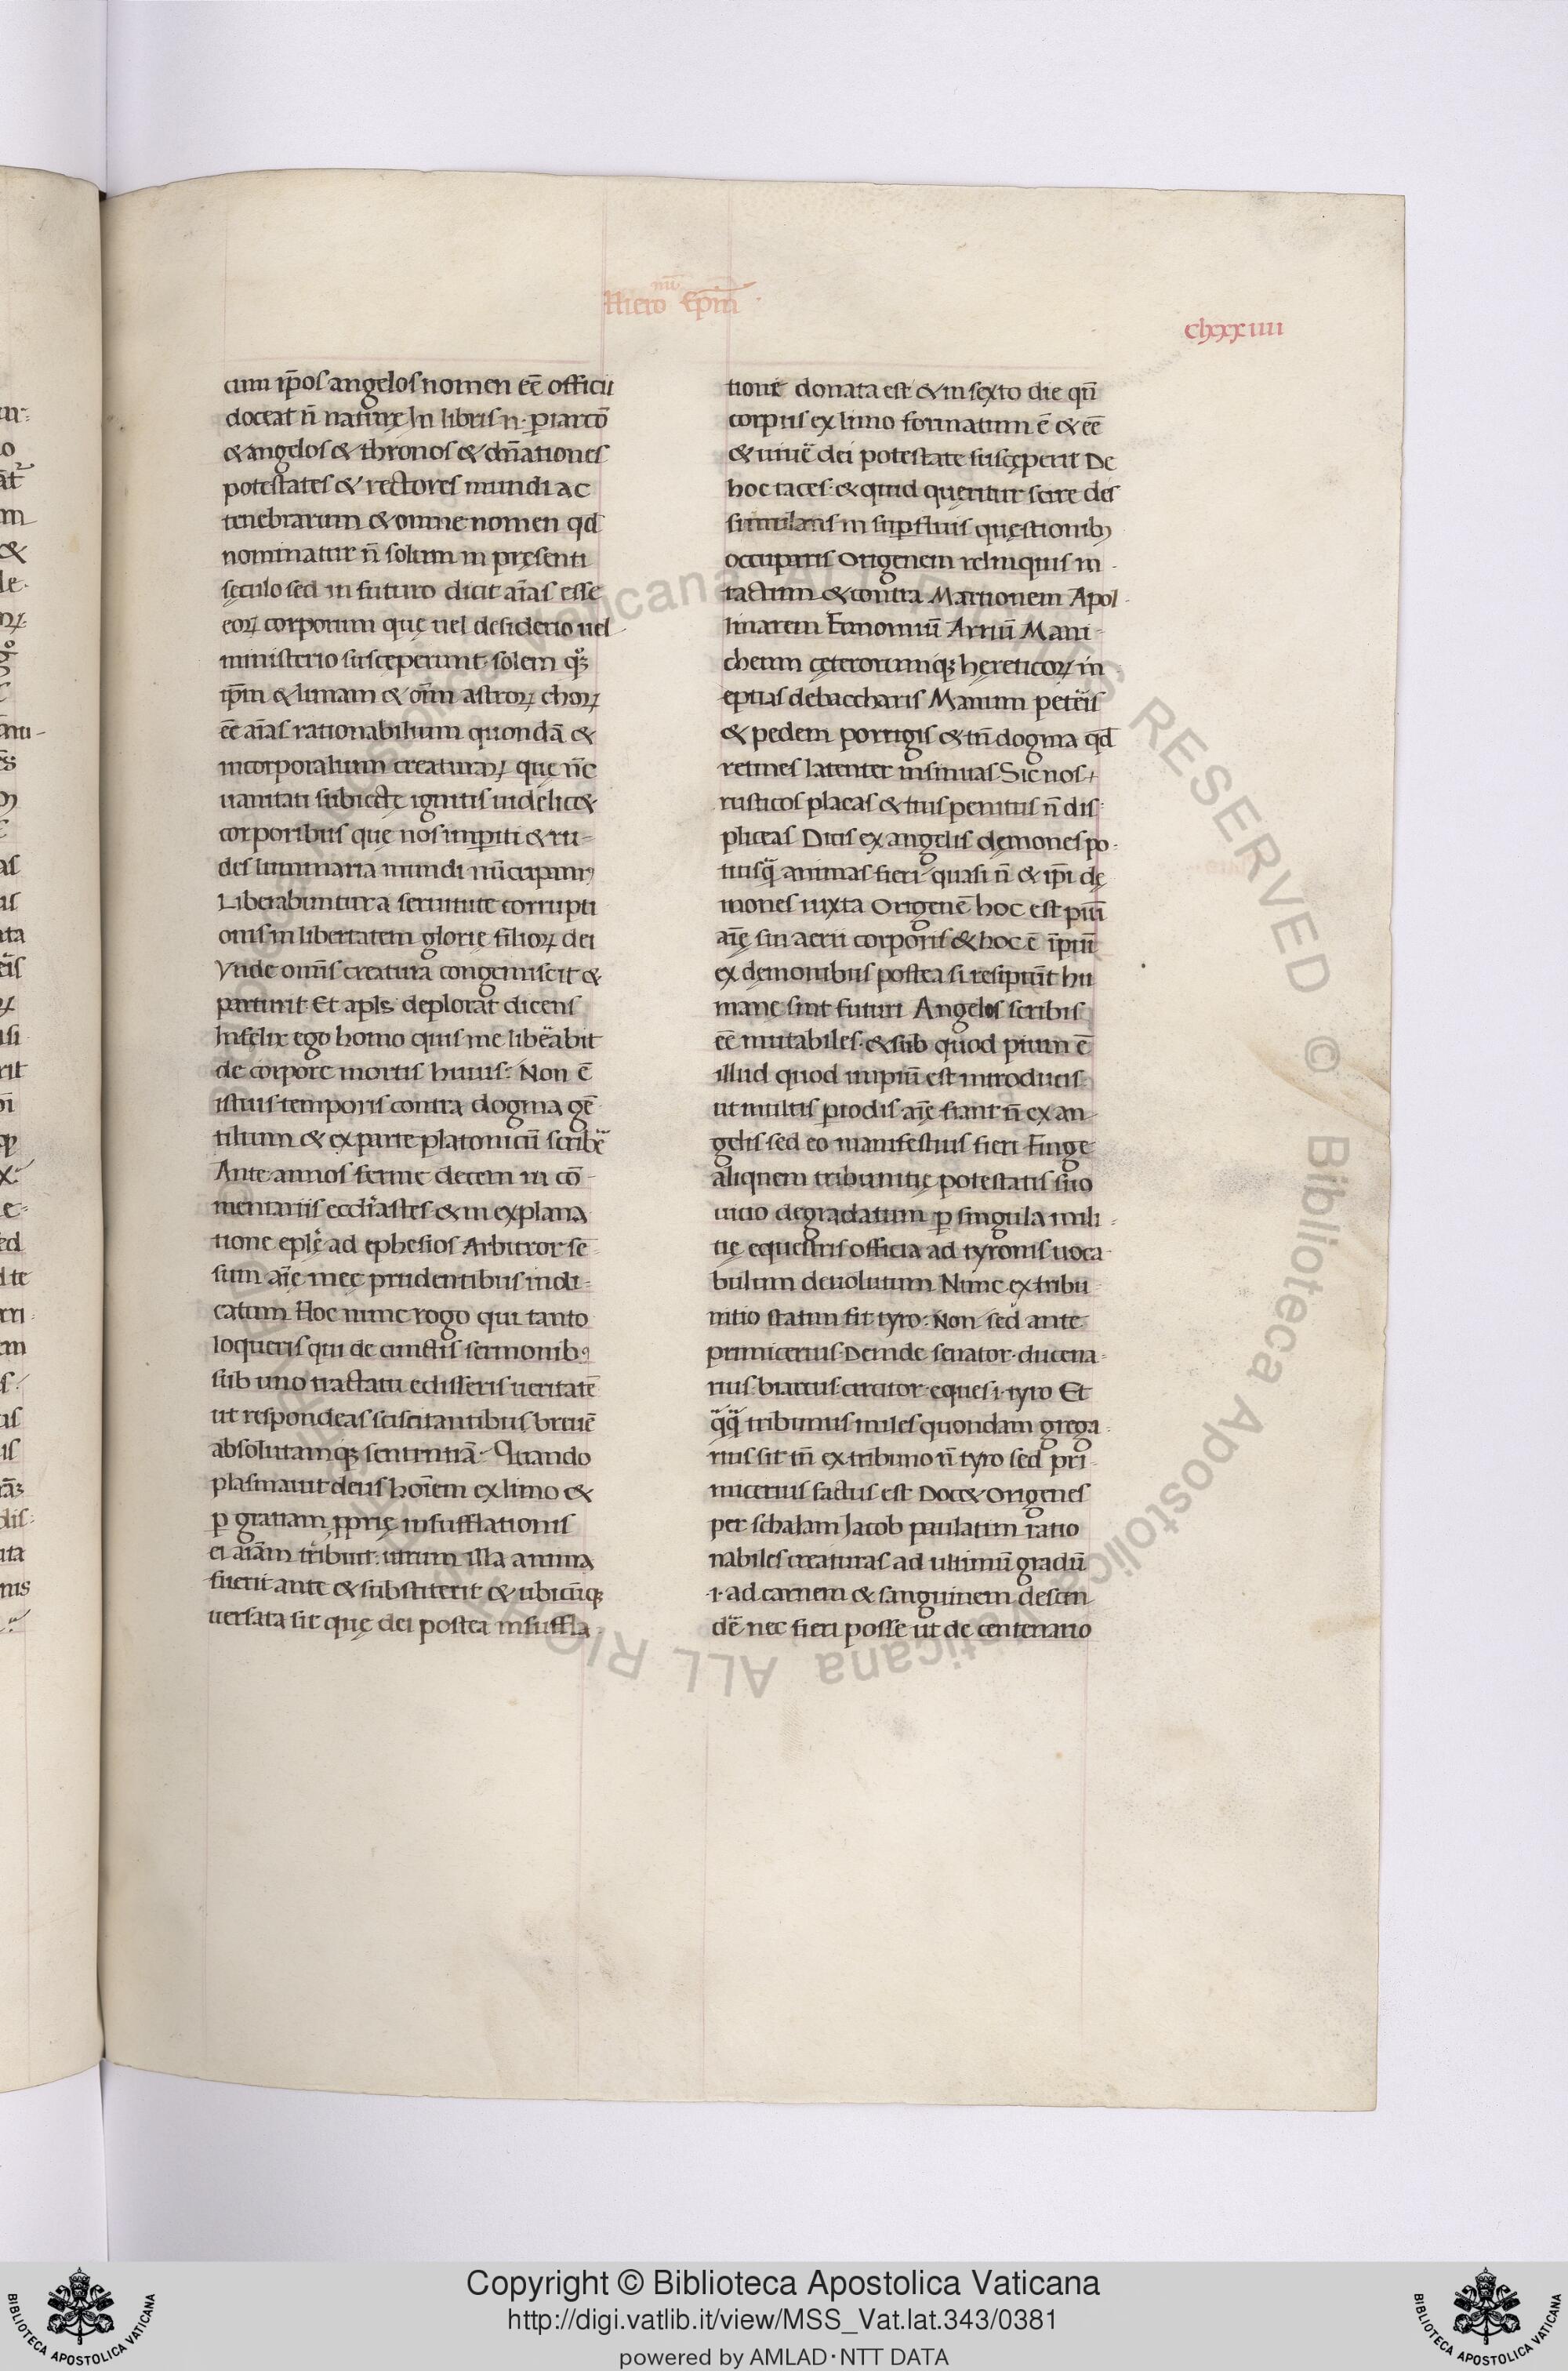 Hieronimi Ep̄m
clxxxiiii
cum ip̄os angelos nomen eē officii
doceat n̄ naturę In libris n̄. ꝑiarcō
& angelos & thronos & dn̄ationes
potestates & rectores mundi ac
tenebrarum & omne nomen qd̄
nominatur n̄ solum in pręsenti
sęculo sed in futuro dicit aīas esse
eoꝝ corporum quę uel desiderio uel
ministerio susceperunt. solem qꝫ
ip̄m & lunam & om̄i astroꝝ choꝝ
eē aīas rationabilium quondā &
incorporalium creaturaꝝ quę nūc
uanitati subiectę ignitis uidelic&
corporibus quę nos imꝑiti & ru-
des luminaria mundi nūcupam᷒
Liberabuntur a seruitute corrupti
onis in libertatem glorię filioꝝ dei
Vnde omīs creatura congemiscit &
parturit Et apl̄s deplorat dicens
Infelix ego homo quis me liberabit
de corpore mortis huius: Non ē
istius temporis contra dogma gē
tilium & ex parte platonicū scribe
Ante annos ferme decem in cō-
mentariis eccl̄iastes & in explana
tione epl̄ę ad ephesios Arbitror sē-
sum aīę meę prudentibus indi-
catum Hoc nunc rogo qui tanto
loqueris qui de cunctis sermonibꝰ
sub uno tractatu edisseris ueritatē
ut respondeas sciscitantibus breuē
absolutamqꝫ sententiā. Quando
plasmauit deus hoīem ex limo &
ꝑ gratiam ꝓprię insufflationis
ei aīam tribuit. utrum illa anima
fuerit ante & substiterit & ubicūqꝫ
uersata sit quę dei postea insuffla
tione donata est & in sexto die qn̄
corpus ex limo formatum ē & eē
& uiuē dei potestate suscęperit De
hoc taces. & quid quęritur scire des
simulans in suꝑfluis quęstionibꝫ
occuparis Origenem relinquis in-
tactum & contra Martionem Apol-
linarem Eunomiū Arriū Mani-
cheum ceterorumqꝫ hereticoꝝ in
eptias debaccharis Manum petētis
& pedem porrigis & tn̄ dogma qd̄
retines latenter insinuas Sic nos
rusticos placas & tuis penitus n̄ dis-
pliceas Dicis ex angelis dęmones po-
tiusꝗ̄ animas fieri quasi n̄ & ip̄i dę
mones iuxta Origenē hoc est prīū
aīę sin aerii corporis & hoc ē īpiū
ex dęmonibus postea si resipiūt hu
manę sint futuri Angelos scribis
eē mutabiles. & sub quod pium ē
illud quod impiū est introducis
ut multis ꝑiodis aīę fiant n̄ ex an-
gelis sed eo manifestius fieri Finge
aliquem tribunitię potestatis suo
uitio degradatum ꝑ singula mili-
tię equestris officia ad tyronis uoca-
bulum deuolutum Nunc ex tribu
nitio statim fit tyro: Non sed ante
primicerius. Deinde senator. ducena-
rius. biarcus. circitor. eques .i. tyro Et
ꝗ̄ꝗ̄ tribunus miles quondam grega-
rius sit tn̄ ex tribuno n̄ tyro sed pri-
micerius factus est Doc& Origenes
per schalam Jacob paulatim ratio
nabiles creaturas ad ultimū gradū
.i. ad carnem & sanguinem descen
dē nec fieri posse ut de centenario
Copyright © Biblioteca Apostolica Vaticana
http://digi.vatlib.it/view/MSS_Vat.lat.343/0381
powered by AMLAD·NTT DATA